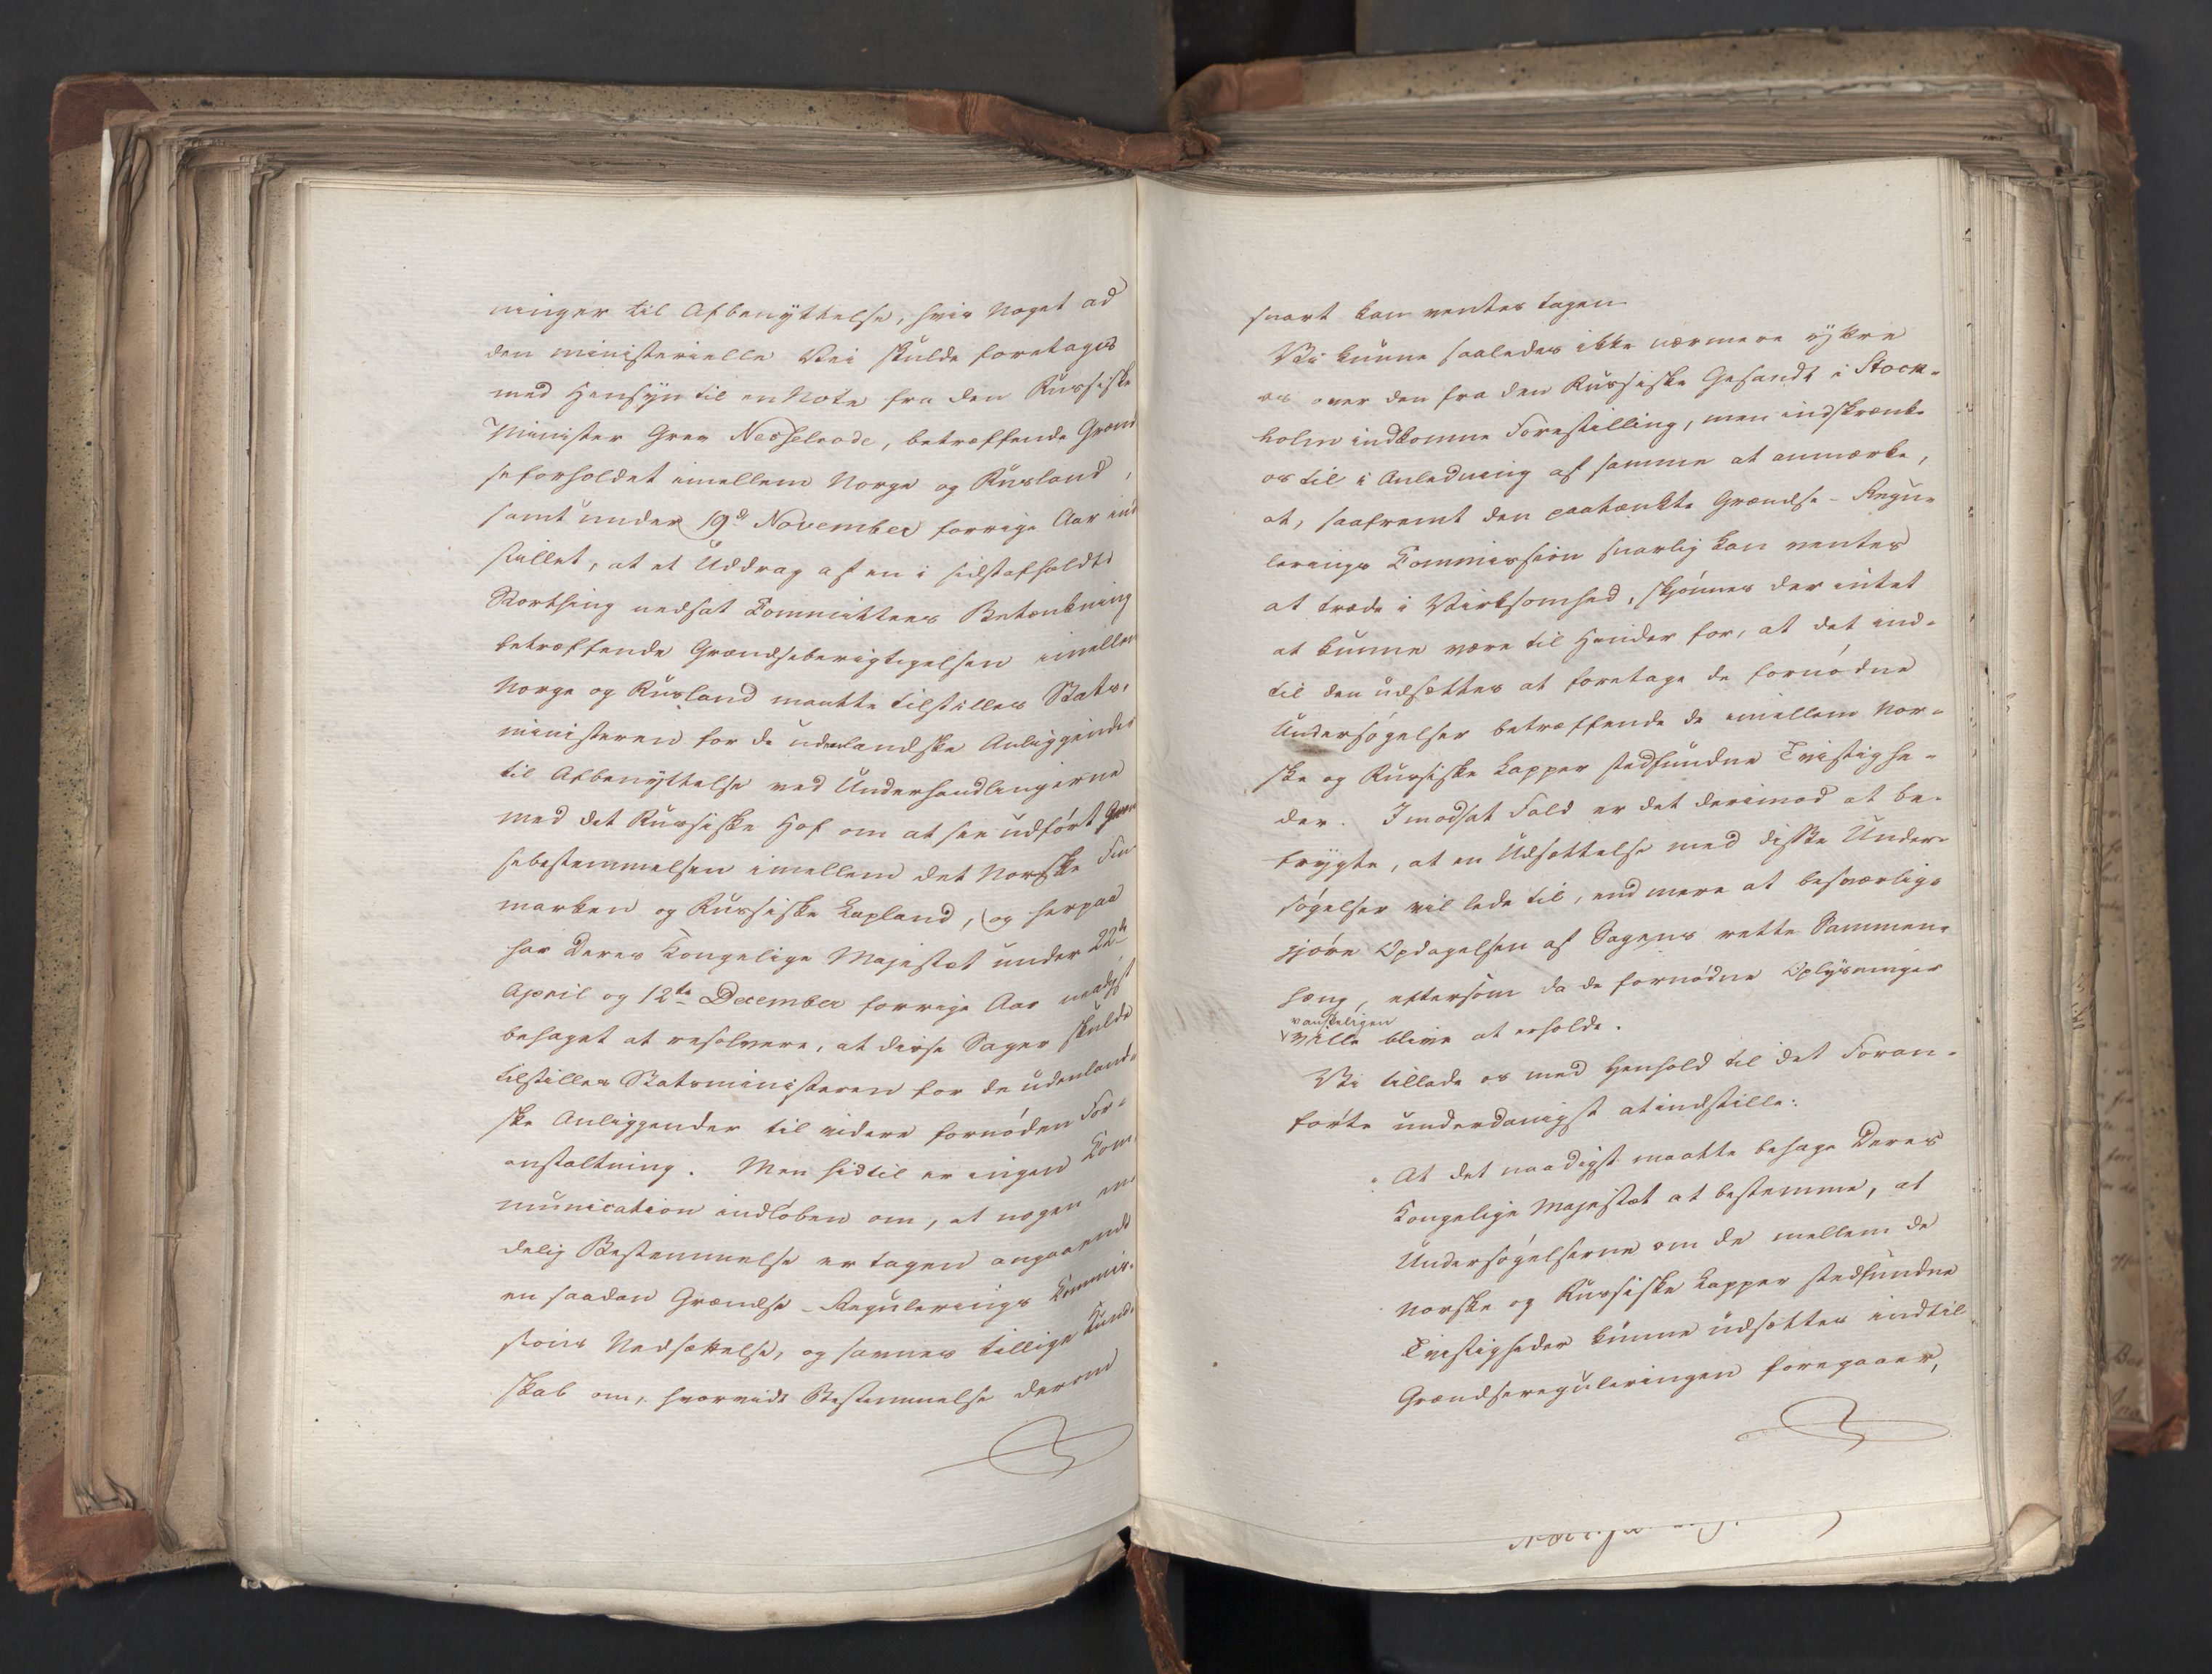 ninger til Afbenyttelse, hvis Noget ad
den ministerielle Vei skulde foretages
med Hensyn til en Note fra den Russiske
Minister Grev Nesselrode, betræffende Grænd
seforholdet imellem Norge og Rusland,
samt under 19de November forrige Aar ind
stillet, at et Uddrag af en i sidstafholdte
Storthing nedsat Committees Betænkning
betræffende Grændseberigtigelsen imellem
Norge og Rusland maatte tilstilles Stats-
ministeren for de udenlandske Anliggender
til Afbenyttelse ved Underhandlingerne
med det Russiske Hof om at see udført Græn
sebestemmelsen imellem det Norske Fin
marken og Russiske Lapland, (og herpaa
har Deres Kongelige Majestæt under 22de
April og 12te December forrige Aar naadigst
behaget at resolvere, at disse Sager skulde
tilstilles Statsministeren for de udenland-
ske Anliggender til videre fornøden For-
anstaltning. Men hidtil er ingen Com-
munication indløben om, at nogen en-
delig Bestemmelse er tagen angaaende
en saadan Grændse-Regulerings Commis-
sions Nedsættelse, og savnes tillige Kund-
skab om, hvorvidt Bestemmelse derom
snart kan ventes tagen.
Vi kunne saaledes ikke nærmere yttre
os over den fra den Russiske Gesandt i Stock-
holm indkomne Forestilling, men indskrænke
os til i Anledning af samme at anmærke,
at, saafremt den paatænkte Grændse-Regu-
lerings Commission snarlig kan ventes
at træde i Virksomhed, skjønnes der intet
at kunne være til Hinder for, at det ind-
til den udsættes at foretage de fornødne
Undersøgelser betræffende de imellem Nor-
ske og Russiske Lapper stedfundne Tvistighe-
der. I modsat Fald er det derimod at be-
frygte, at en Udsættelse med disse Under-
søgelser vil lede til, end mere at besværlig-
gjøre Opdagelsen af Sagens rette Sammen-
hæng, eftersom da de fornødne Oplysninger
vanskeligen
ville blive at erholde.
Vi tillade os med Henhold til det Foran-
førte underdanigst at indstille:
"At det naadigst maatte behage Deres
Kongelige Majestæt at bestemme, at
Undersøgelserne om de mellem de
Norske og Russiske Lapper stedfundne
Tvistigheder kunne udsættes indtil
Grændsereguleringen foregaaer,